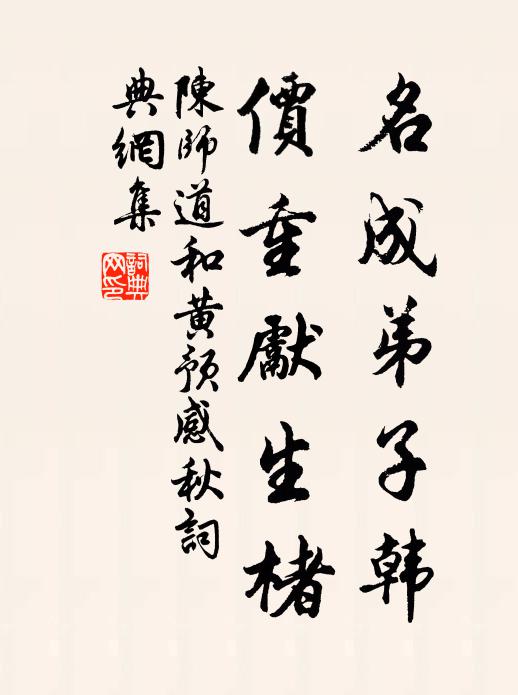 名成弟子韩
價重獻生楮
陳師道和黃預感秋詞
典網集
詞典网印